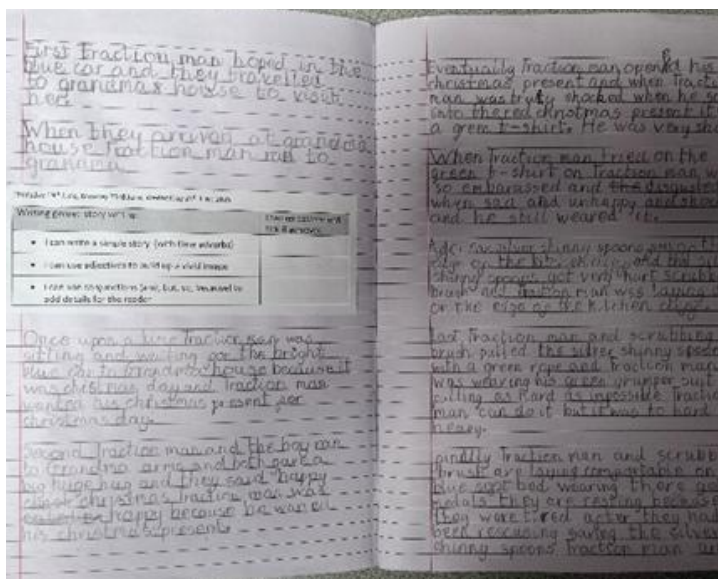 First Traction man hoped in the
blue car and they travelled
to grandmas house to visit
her.
When they arrived at grandma
house Traction man ran to
grandma.
Writing genre: story writing
I can write a simple story (with time adverbs)
I can use adjectives to build up a vivid image
I can use conjunctions (and, but, so, because) to
add details for the reader
Once upon a time Traction man was
sitting and waiting for the bright
blue car to Grandma house because it
was christmas day and Traction man
wanted his christmas present for
christmas day.
Second Traction man and the boy ran
to Grandma arms and both gave a
big huge hug and they said happy
christmas Traction man was
happy because he
his christmas present.
Eventually Traction man opened his
christmas present and when Tracti
man was truly shocked when he s
into the red christmas present it
a green t-shirt. He was very sh
When Traction man tried on the
green t-shirt on Traction man w
so embarassed and the disguste
when sad and unhappy and
and he still weared it.
silver shinny spoons
edge of the
shinny spoons got very hurt scrubb
brush and Traction man was laying
or the edge of the kitchen
Last Traction man and scrubbing
brush pulled the silver shinny spoon
with a green rope and Traction man
was wearing his green
pulling as hard as inpossible Tractio
man can do it but it was to hard
heavy.
finally Traction man and scrubb
brush are laying comportable on
blue soft bed wearing there go
medals they are resting because
they were tired after they had
been rescueing saving the silver
shinny spoons Traction man an